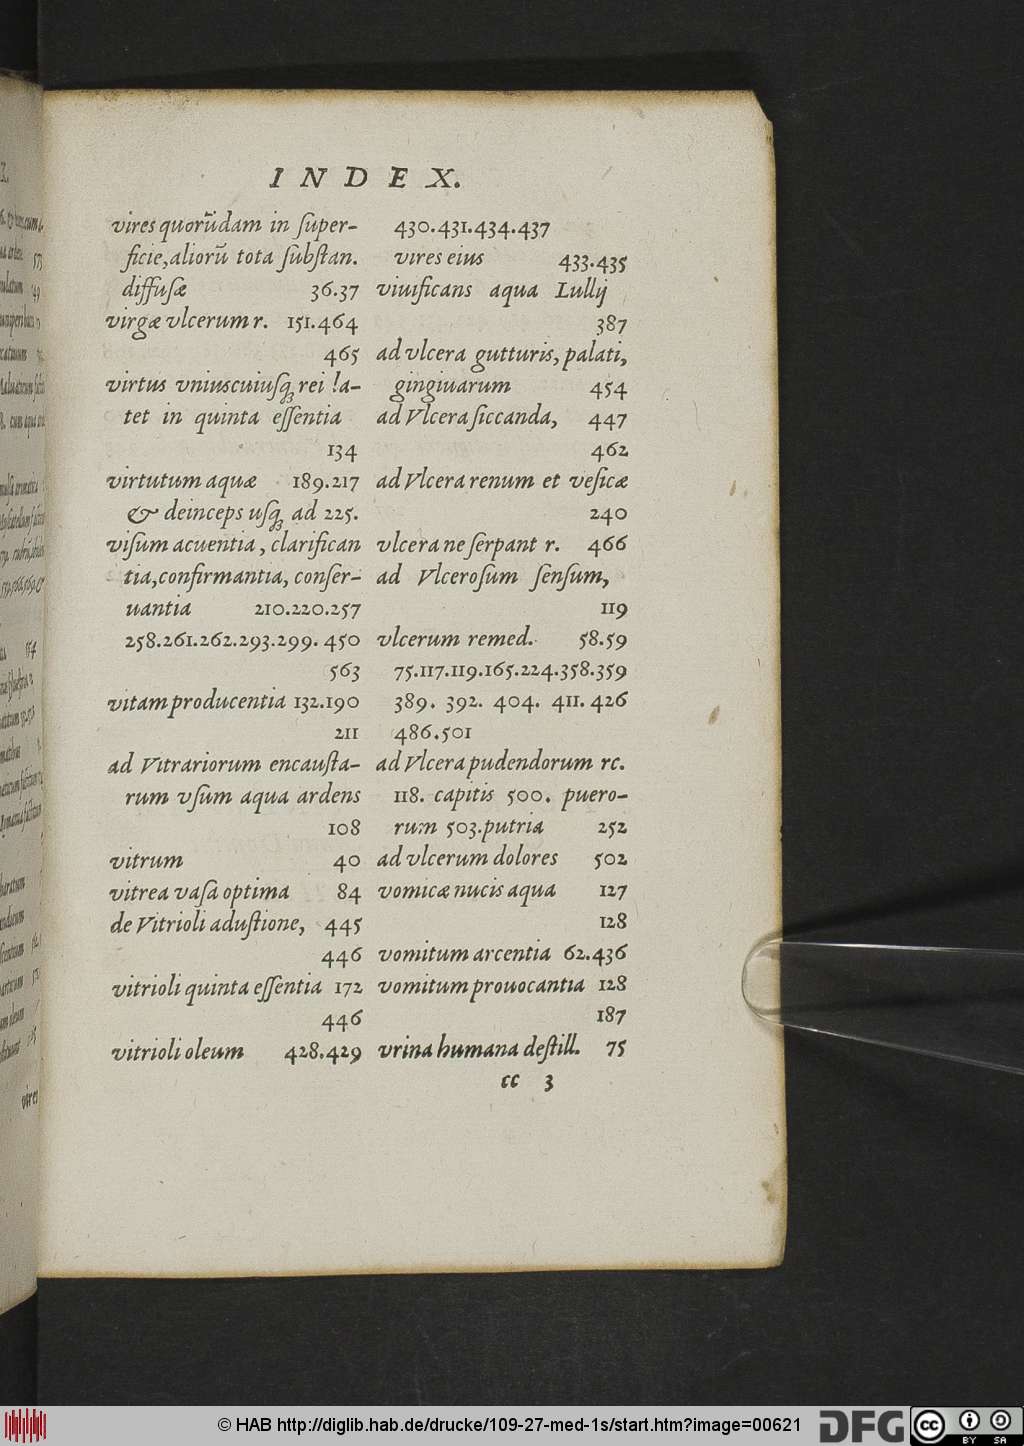 INDEX.
vires quorũdam in ſuper-
ficie, aliorũ tota ſubſtan.
diffuſæ 36.37
virgæ vlcerum r. 151.464
465
virtus vniuscuiuſq; rei la-
tet in quinta eſſentia
134
virtutum aquæ 189.217
& deinceps uſq; ad 225.
viſum acuentia, clarifican
tia, confirmantia, conſer-
uantia 210.220.257
258.261.262.293.299. 450
563
vitam producentia 132.190
211
ad Vitrariorum encauſta-
rum vſum aqua ardens
108
vitrum 40
vitrea vaſa optima 84
de Vitrioli aduſtione, 445
446
vitrioli quinta eſſentia 172
446
vitrioli oleum 428.429
430.431.434.437
vires eius 433.435
viuificans aqua Lullij
387
ad vlcera gutturis, palati,
gingiuarum 454
ad Vlcera ſiccanda, 447
462
ad Vlcera renum et veſicæ
240
vlcera ne ſerpant r. 466
ad Vlceroſum ſenſum,
119
vlcerum remed. 58.59
75.117.119.165.224.358.359
389. 392. 404. 411. 426
486.501
ad Vlcera pudendorum rc.
118. capitis 500. puero-
rum 503. putria 252
ad vlcerum dolores 502
vomicæ nucis aqua 127
128
vomitum arcentia 62.436
vomitum prouocantia 128
187
vrina humana deſtill. 75
cc 3
vires
© HAB http://diglib.hab.de/drucke/109-27-med-1s/start.htm?image=00621
DFG
cc
BY SA